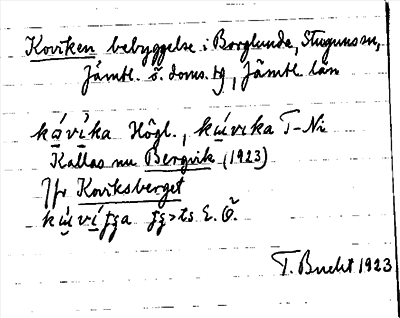 Koviken bebyggelse i Borglunda, Stuguns sn,
Jämtl. ö. doms. tg, Jämtl. län
kávika Högl., kúvika T-Ni
Kallas nu Bergvik (1923)
Jfr Koviksberget
T. Bucht 1923